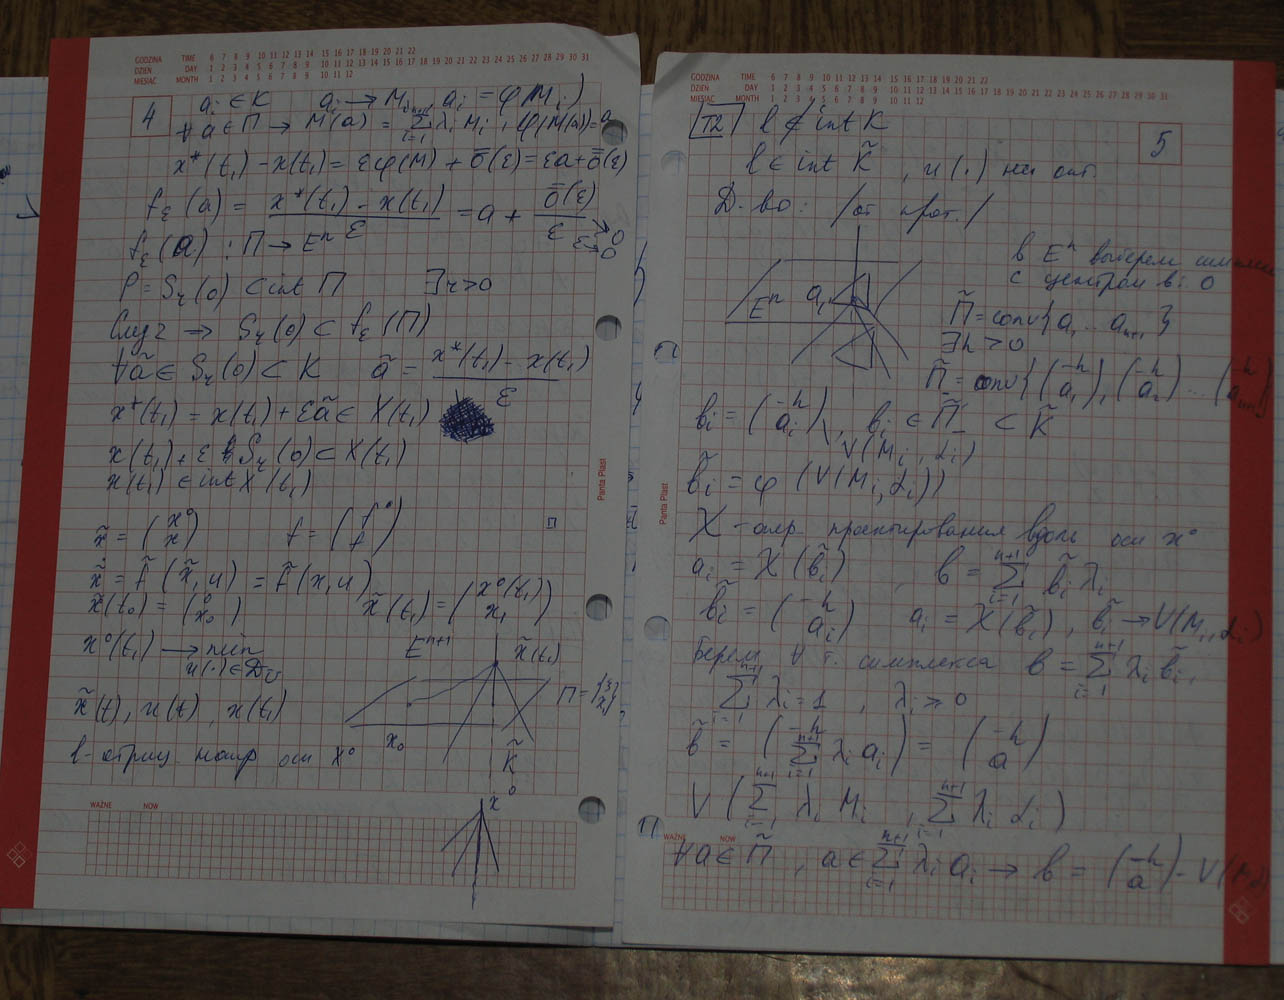 GODZINA TIME 6 7 8 9 10 11 12 13 14 15 16 17 18 19 20 21 22
DZIEŃ DAY 1 2 3 4 5 6 7 8 9 10 11 12 13 14 15 16 17 18 19 20 21 22 23 24 25 26 27 28 29 30 31
MIESIĄC MONTH 1 2 3 4 5 6 7 8 9 10 11 12
4
a_i ∈ K a_i → M_i, a_i = φ(M_i)
∀ a ∈ Π → M(a) = Σ_{i=1}^{n+1} λ_i M_i, φ(M(a)) = a
x*(t₁) - x(t₁) = εφ(M) + ō(ε) = εa + ō(ε)
f_ε(a) = (x*(t₁) - x(t₁))/ε = a + ō(ε)/ε → 0, ε → 0
f_ε(a) : Π → Eⁿ
P = S_r(0) ⊂ int Π ∃ r > 0
След 2 ⇒ S_r(0) ⊂ f_ε(Π)
∀ ã ∈ S_r(0) ⊂ K ã = (x*(t₁) - x(t₁))/ε
x*(t₁) = x(t₁) + εã ∈ X(t₁)
x(t₁) + ε S_r(0) ⊂ X(t₁)
x(t₁) ∈ int X(t₁)
x̃ = (x⁰ x) f = (f⁰ f)
x̃̇ = f̃(x̃, u) = f̃(x, u)
x̃(t₀) = (0 x₀) x̃(t₁) = (x⁰(t₁) x₁)
x⁰(t₁) → min u(·) ∈ D_U
Eⁿ⁺¹ x̃(t₁)
x̃(t), u(t), x(t₁)
x₀ K̃
l - отриц напр оси x⁰
x⁰
WAŻNE NOW
Panta Plast
GODZINA TIME 6 7 8 9 10 11 12 13 14 15 16 17 18 19 20 21 22
DZIEŃ DAY 1 2 3 4 5 6 7 8 9 10 11 12 13 14 15 16 17 18 19 20 21 22 23 24 25 26 27 28 29 30 31
MIESIĄC MONTH 1 2 3 4 5 6 7 8 9 10 11 12
5
T2 l ∉ int K
l ∈ int K̃, u(·) не опт.
Д-во: /от прот./
в Eⁿ выберем
с центром в 0
Eⁿ a₁
Π̃ = conv{a₁ ... a_{n+1}}
∃ h > 0
Π̃ = conv{(-h a₁), (-h a₂) ... (-h a_{n+1})}
b_i = (-h a_i), b_i ∈ Π̃ ⊂ K̃
V(M_i, α_i)
b̃_i = φ(V(M_i, α_i))
X - опр. проектирования вдоль оси x⁰
a_i = X(b̃_i), b = Σ_{i=1}^{n+1} b̃_i λ_i
b̃_i = (-h a_i) a_i = X(b̃_i), b̃_i → V(M_i, α_i)
Берем ∀ т. симплекса b = Σ_{i=1}^{n+1} λ_i b̃_i,
Σ_{i=1}^{n+1} λ_i = 1, λ_i ≥ 0
b̃ = (-h Σ_{i=1}^{n+1} λ_i a_i) = (-h a)
V(Σ_{i=1}^{n+1} λ_i M_i, Σ_{i=1}^{n+1} λ_i α_i)
WAŻNE NOW
∀ a ∈ Π̃, a ∈ Σ_{i=1}^{n+1} λ_i a_i → b = (-h a) -
Panta Plast